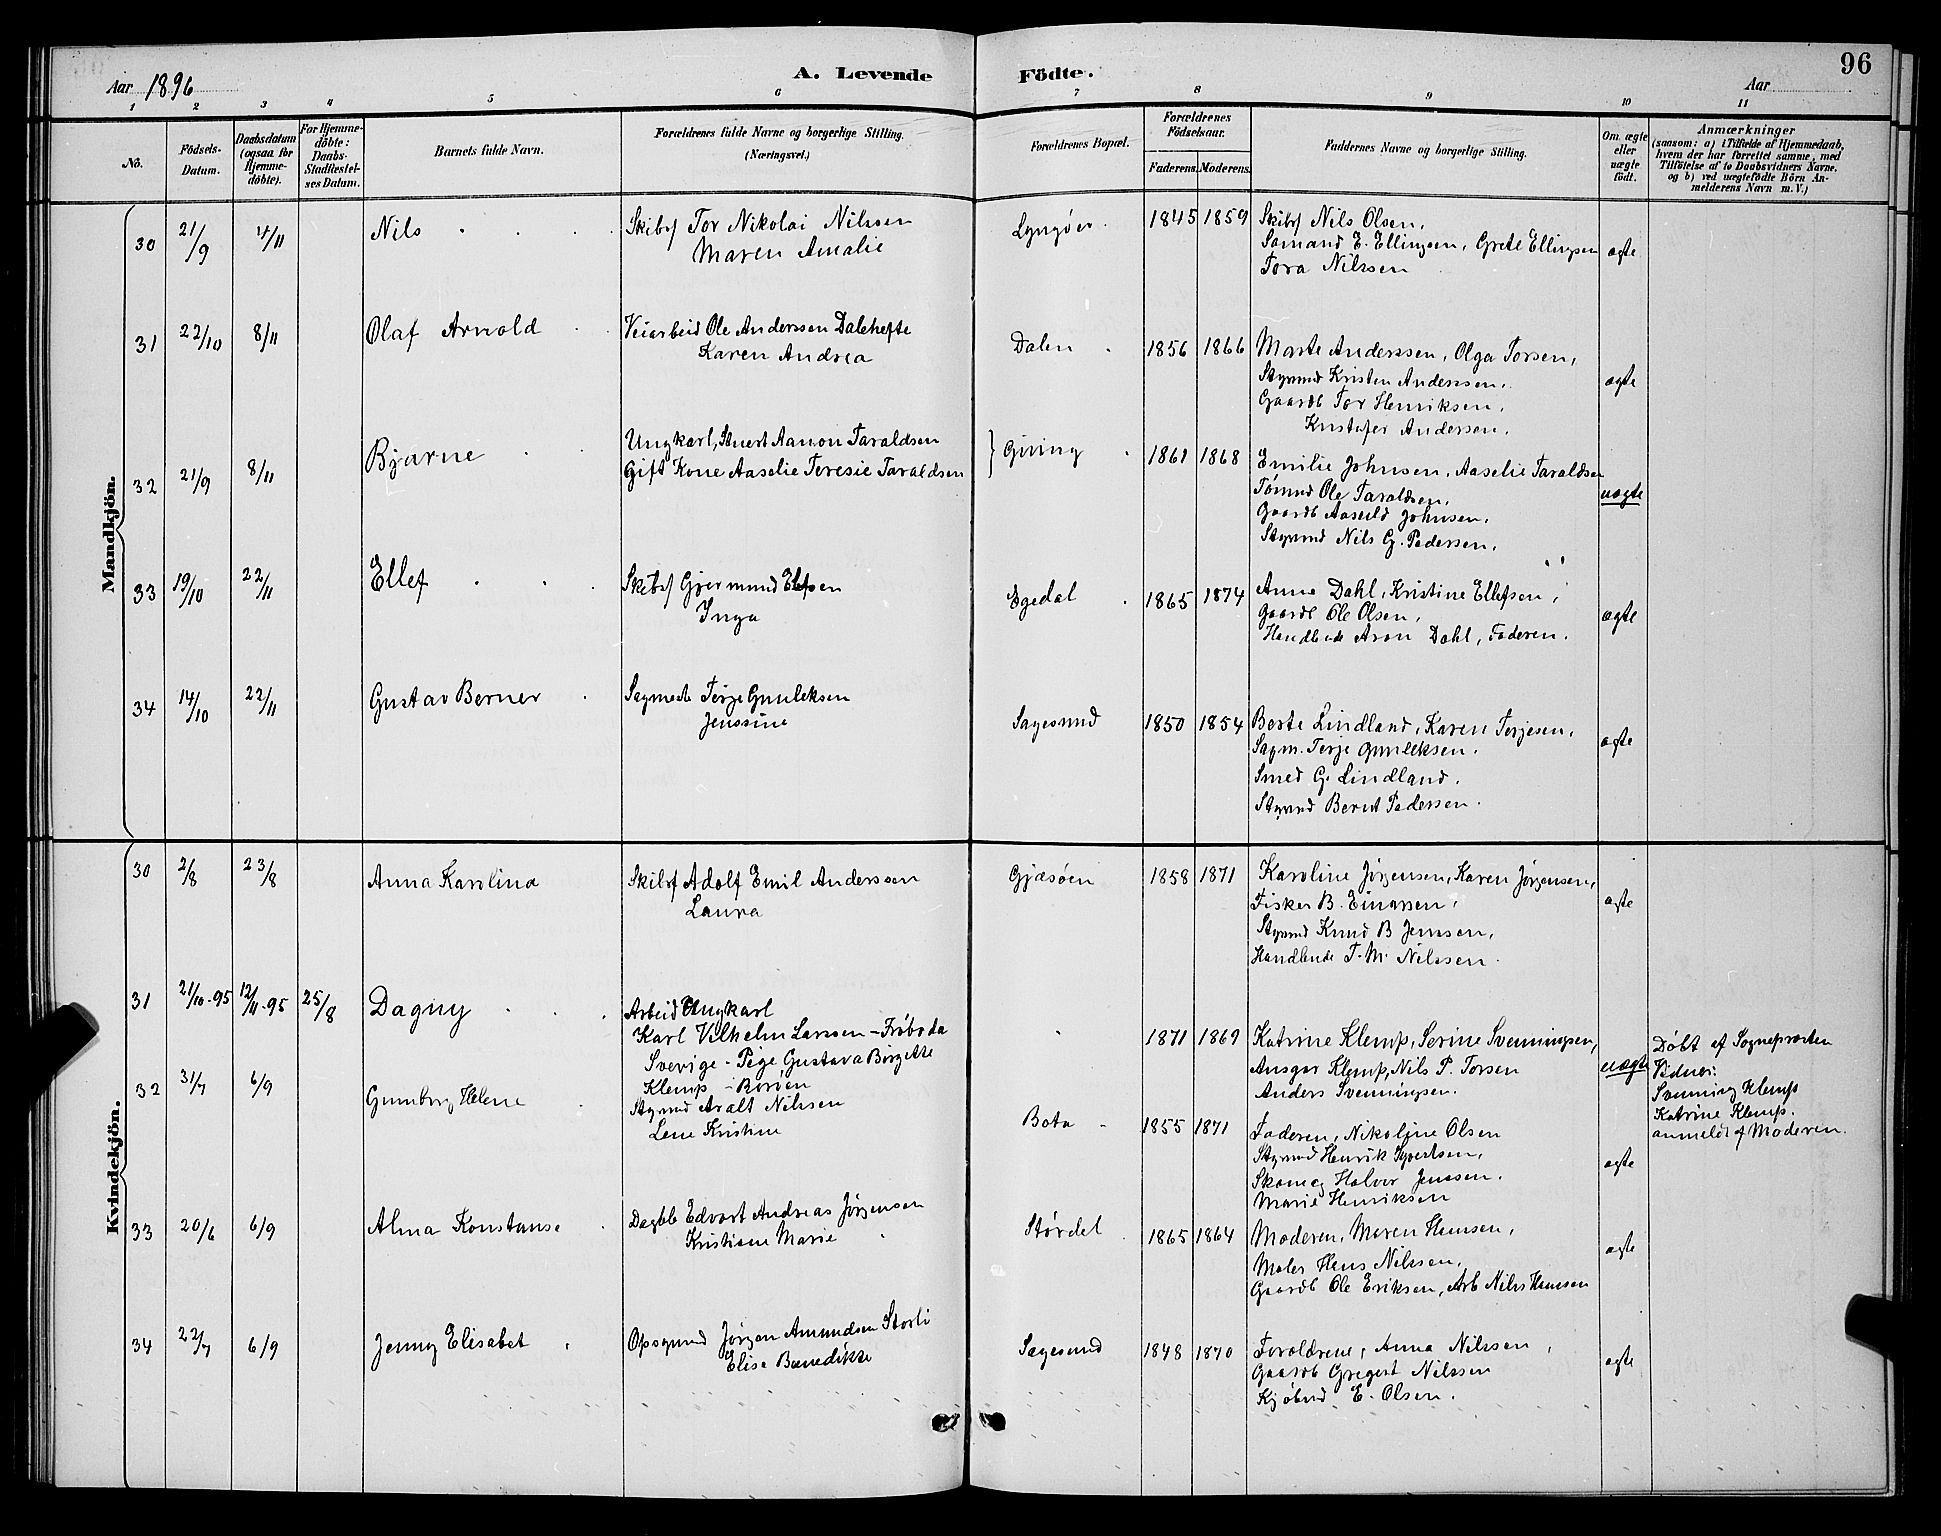 96
Aar 1896
A. Levende Födte.
Aar
1 2 3 4 5 6 7 8 9 10 11
No.
Födsels-
Datum.
Daabsdatum
(ogsaa for
Hjemme-
döbte).
For Hjemme-
döbte:
Daabs-
Stadfæstel-
ses Datum.
Barnets fulde Navn.
Forældrenes fulde Navne og borgerlige Stilling.
(Næringsvei.)
Forældrenes Bopæl.
Forældrenes
Födselsaar.
Faderens. Moderens.
Faddernes Navne og borgerlige Stilling.
Om ægte
eller
uægte
födt.
Anmærkninger
(saasom: a) i Tilfælde af Hjemmedaab,
hvem der har forrettet samme, med
Tilföielse af to Daabsvidners Navne,
og b) ved uægtefödte Börn An-
melderens Navn m. V.)
Mandkjön.
30 21/9 4/11 Nils
Skibsf Tor Nikolai Nilssen
Maren Amalie
Lyngöer 1845 1859
Skibsf Nils Olsen,
Sømand E. Ellingsen, Grete Ellingsen
Tora Nilssen
ægte
31 22/10 8/11 Olaf Arnold
Veiarbeid Ole Anderssen Dalehefte
Karen Andrea
Dalen 1856 1866
Marte Anderssen, Olga Torsen,
Styrmd Kristen Anderssen,
Gaardb Tor Henriksen,
Kristofer Andersen.
ægte
32 21/9 8/11 Bjarne
Ungkarl, Stuert Aanon Taraldsen
Gift Kone Aaselie Teresie Taraldsen
Giving 1861 1868
Emilie Johnsen, Aaselie Taraldsen
Tømmd Ole Taraldsen,
Gaardb Aaseuld Johnsen,
Styrmd Nils G. Pedersen.
uægte
33 19/10 22/11 Ellef
Skibsf Gjermund Elefsen
Inga
Egedal 1865 1874
Anne Dahl, Kristine Ellefsen,
Gaardb Ole Olsen,
Handlende Aron Dahl, Faderen.
ægte
34 14/10 22/11 Gustav Berner
Sagmest Terje Gunleksen
Jenssine
Sagesund 1850 1854
Berte Lindland, Karen Terjesen,
Sagm. Terje Gunleksen.
Smed G. Lindland.
Styrmd Bernt Pedersen.
ægte
Kvindekjön.
30 2/8 23/8 Anna Karolina
Skibsf Adolf Emil Anderssen
Laura
Gjæsöen 1858 1871
Karoline Jørgensen, Karen Jørgensen,
Fisker B. Einarsen,
Styrmd Knud B Jenssen,
Handlende T. M. Nilssen.
ægte
31 21/10-95 12/11-95 25/8 Dagny
Arbeid Ungkarl
Karl Vilhelm Larssen - Fröboda
Sverige - Pige Gustava Birgette
Klemp - Boröen
1871 1869
Katrine Klemp, Serine Svenningsen,
Ansgar Klemp, Nils P. Torsen
Anders Svenningsen.
uægte
Döbt af Sognepresten
Vidner:
Svenning Klemp
Katrine Klemp.
anmeldt af Moderen.
32 31/7 6/9 Gunborg Helene
Styrmd Aralt Nilssen
Lene Kristine
Bota 1855 1871
Faderen, Nikoline Olsen
Styrmd Henrik Syvertsen,
Skomag Halvor Jenssen.
Marie Henriksen
ægte
33 20/6 6/9 Alma Konstanse
Dagbl Edvart Andreas Jørgensen
Kristiane Marie
Stördal 1865 1864
Moderen, Maren Hansen,
Maler Hans Nilssen,
Gaardb Ole Eriksen, Arb Nils Hanssen
ægte
34 22/7 6/9 Jenny Elisabet
Opsynmd Jørgen Amundsen Storli
Elise Benedikte
Sagesund 1848 1870
Foreldrene, Anna Nilssen,
Gaardb Gregert Nilssen
Kjöbmd E. Olsen.
ægte